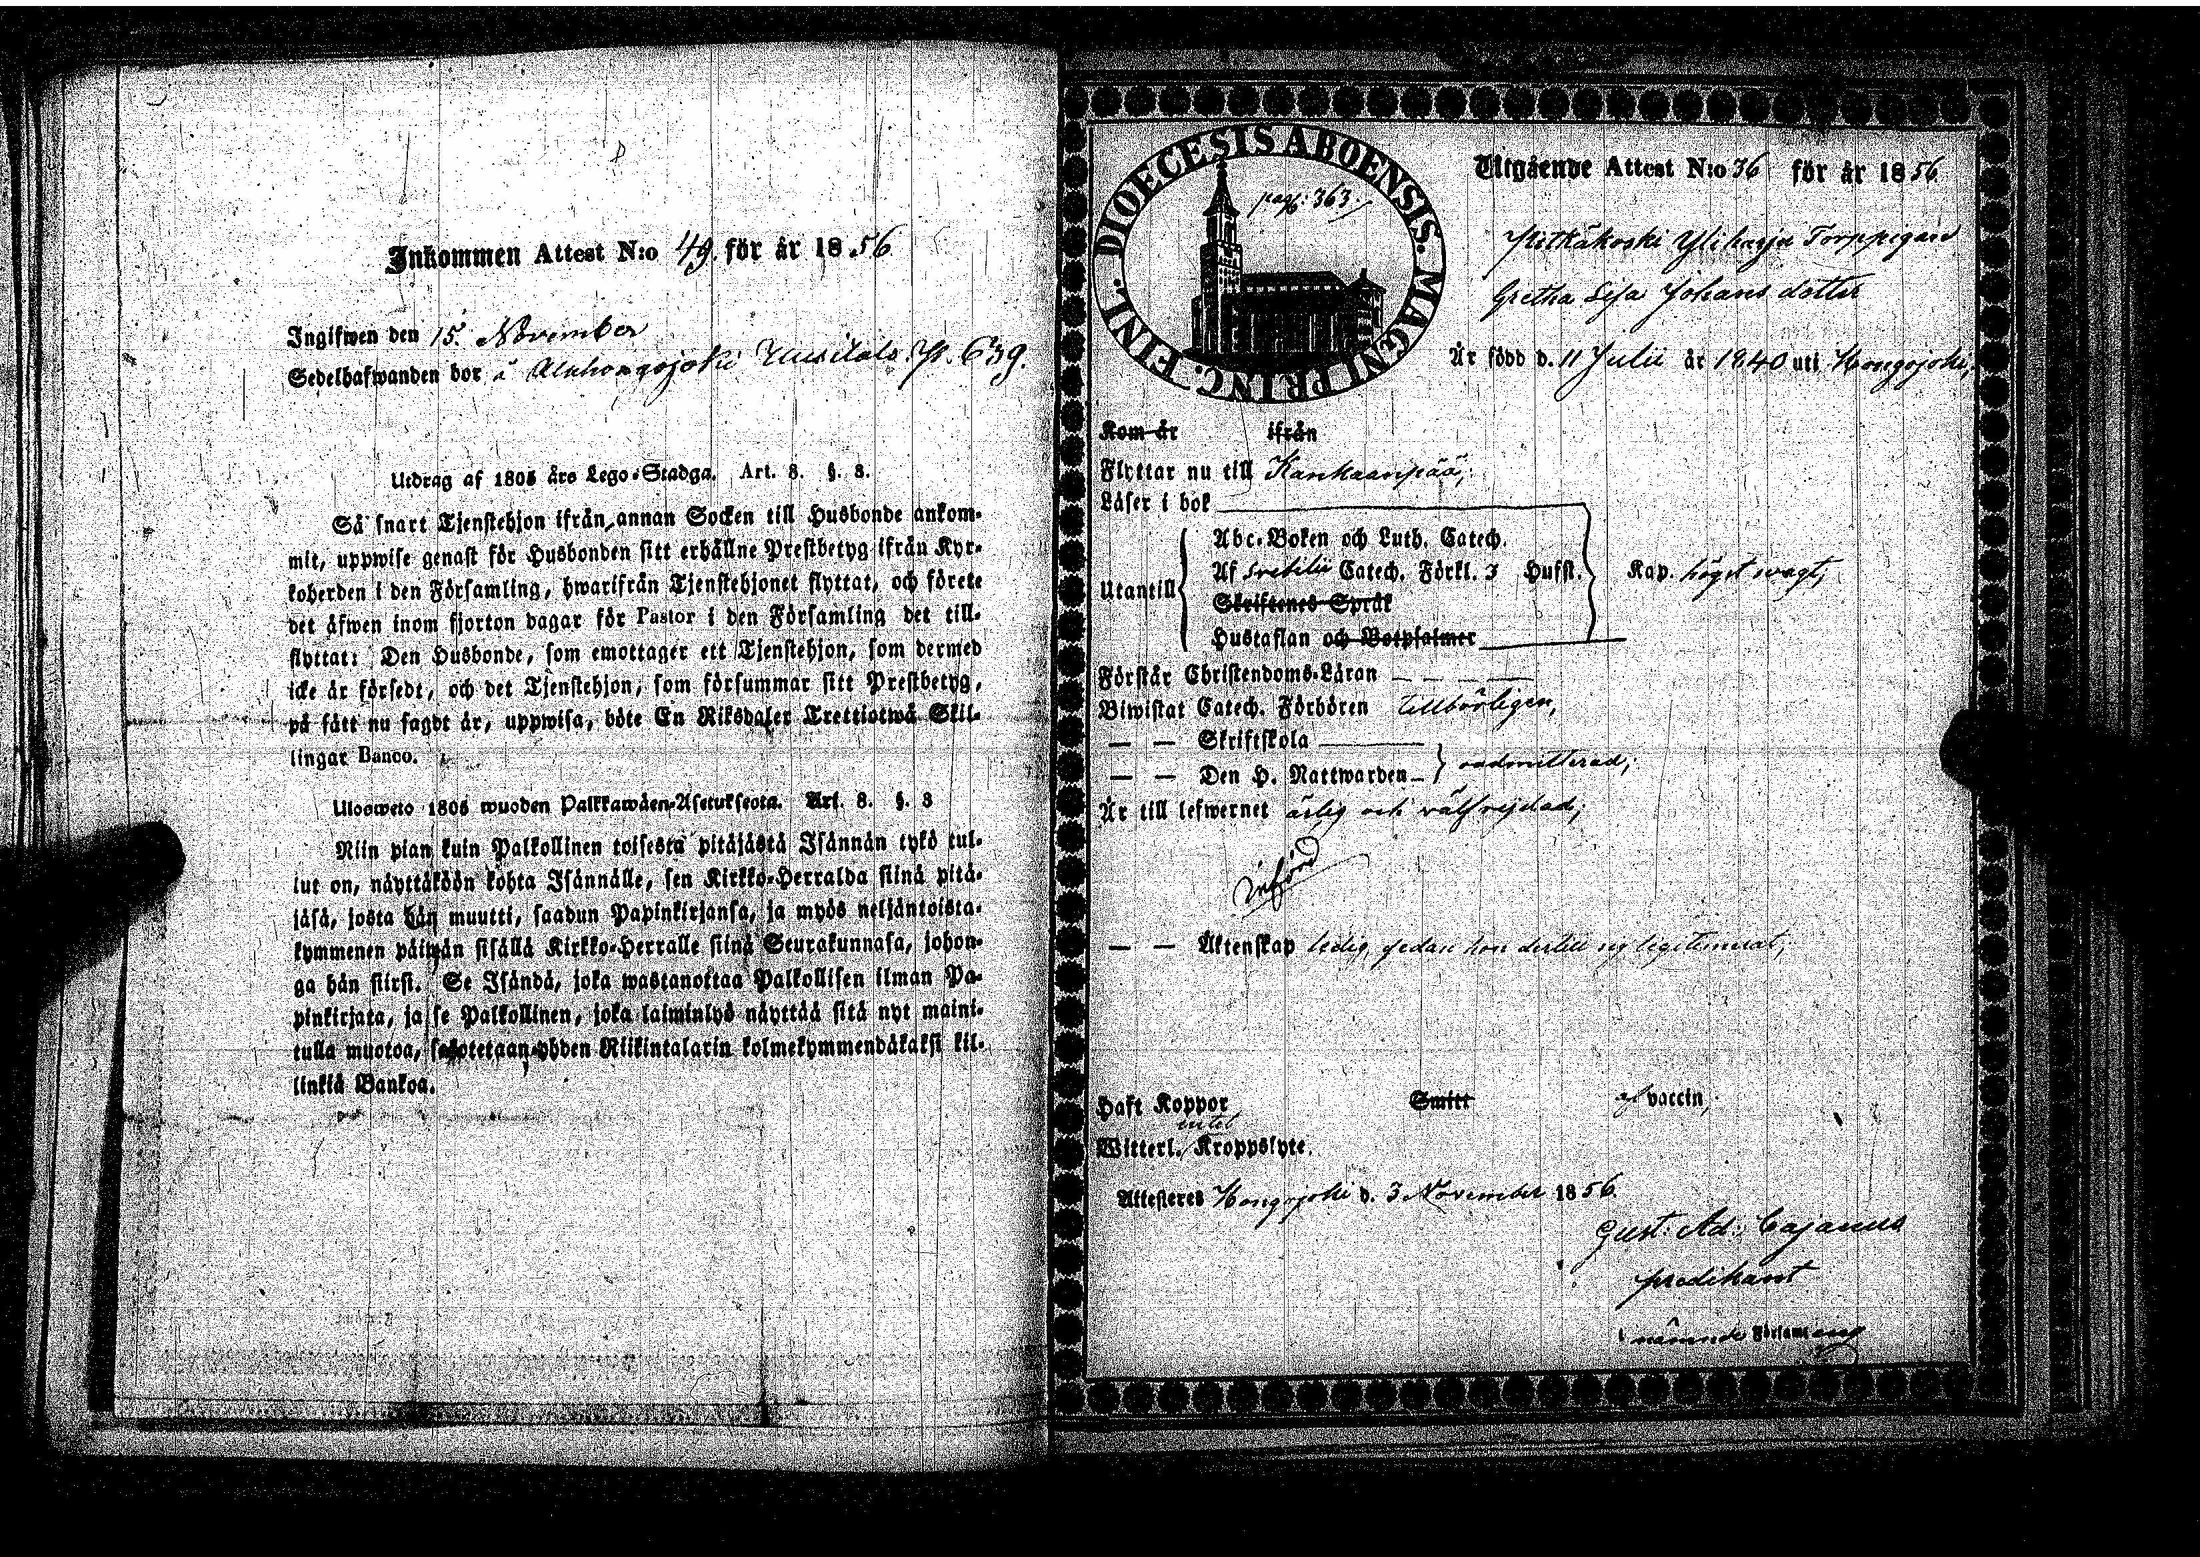 Inkommen Attest N:o 49. för år 18.56
Ingifwen den 15. November
Sedelhafwanden bor å Alahongojoki Uusitalo. p. 639.
Utdrag af 1805 års Lego-Stadga. Art. 8. §. 8.
Så snart Tjenstehjon ifrån annan Socken till Husbonde ankom-
mit, uppwise genast för Husbonden sitt erhållne Prestbetyg ifrån Kyr-
koherden i den Församling, hwarifrån Tjenstehjonet flyttat, och förete
det äfwen inom fjorton dagar för Pastor i den Församling det till-
flyttat: Den Husbonde, som emottager ett Tjenstehjon, som dermed
icke är försedt, och det Tjenstehjon, som försummar sitt Prestbetyg,
på sätt nu sagdt är, uppwisa, böte En Riksdaler Trettiotwå Skil-
lingar Banco.
Ulosweto 1805 wuoden Palkkawäen-Asetuksesta. Art. 8. §. 8
Niin pian kuin Palkollinen toisesta pitäjästä Isännän tykö tul-
lut on, näyttäköön kohta Isännälle, sen Kirkko-Herralda siinä pitä-
jäsä, josta hän muutti, saadun Papinkirjansa, ja myös neljäntoista-
kymmenen päiwän sisällä Kirkko-Herralle siinä Seurakunnasa, johon-
ga hän siirsi. Se Isändä, joka wastanottaa Palkollisen ilman Pa-
pinkirjata, ja se Palkollinen, joka laiminlyö näyttää sitä nyt maini-
tulla muotoa, sakotetaan yhden Riikintalarin kolmekymmendäkaksi kil-
linkiä Bankoa.
DIOECESIS ABOENSIS. MAGNI PRINC. FINL.
pag: 363.
Utgående Attest N:o 36 för år 1856
Pitkäkoski Yliharja Torppegard
Gretha Lisa Johans dotter
Är född d. 11 Julii år 1840 uti Hongojoki;
Kom år ifrån
Flyttar nu till Kankaanpää;
Läser i bok
Abc-Boken och Luth. Catech.
Utantill Af Svebilii Catech. Förkl. 3 Husst. Kap. högst svagt;
Skriftenes Språk
Hustaflan och Botpsalmer
Förstår Christendoms-Läran
Biwistat Catech. Förhören tillbörligen,
— — Skriftskola
— — Den H. Nattwarden oadmitterad;
Är till lefwernet ärlig och välfrejdad;
införd
— — Äktenskap ledig, sedan hon dertill ej legitimerat;
Haft Koppor Smitt af vaccin;
intet
Witterl. Kroppslyte.
Attesteres Hongojoki d. 3 November 1856.
Gust: Ad: Cajanus
predikant
i nämnde Församling